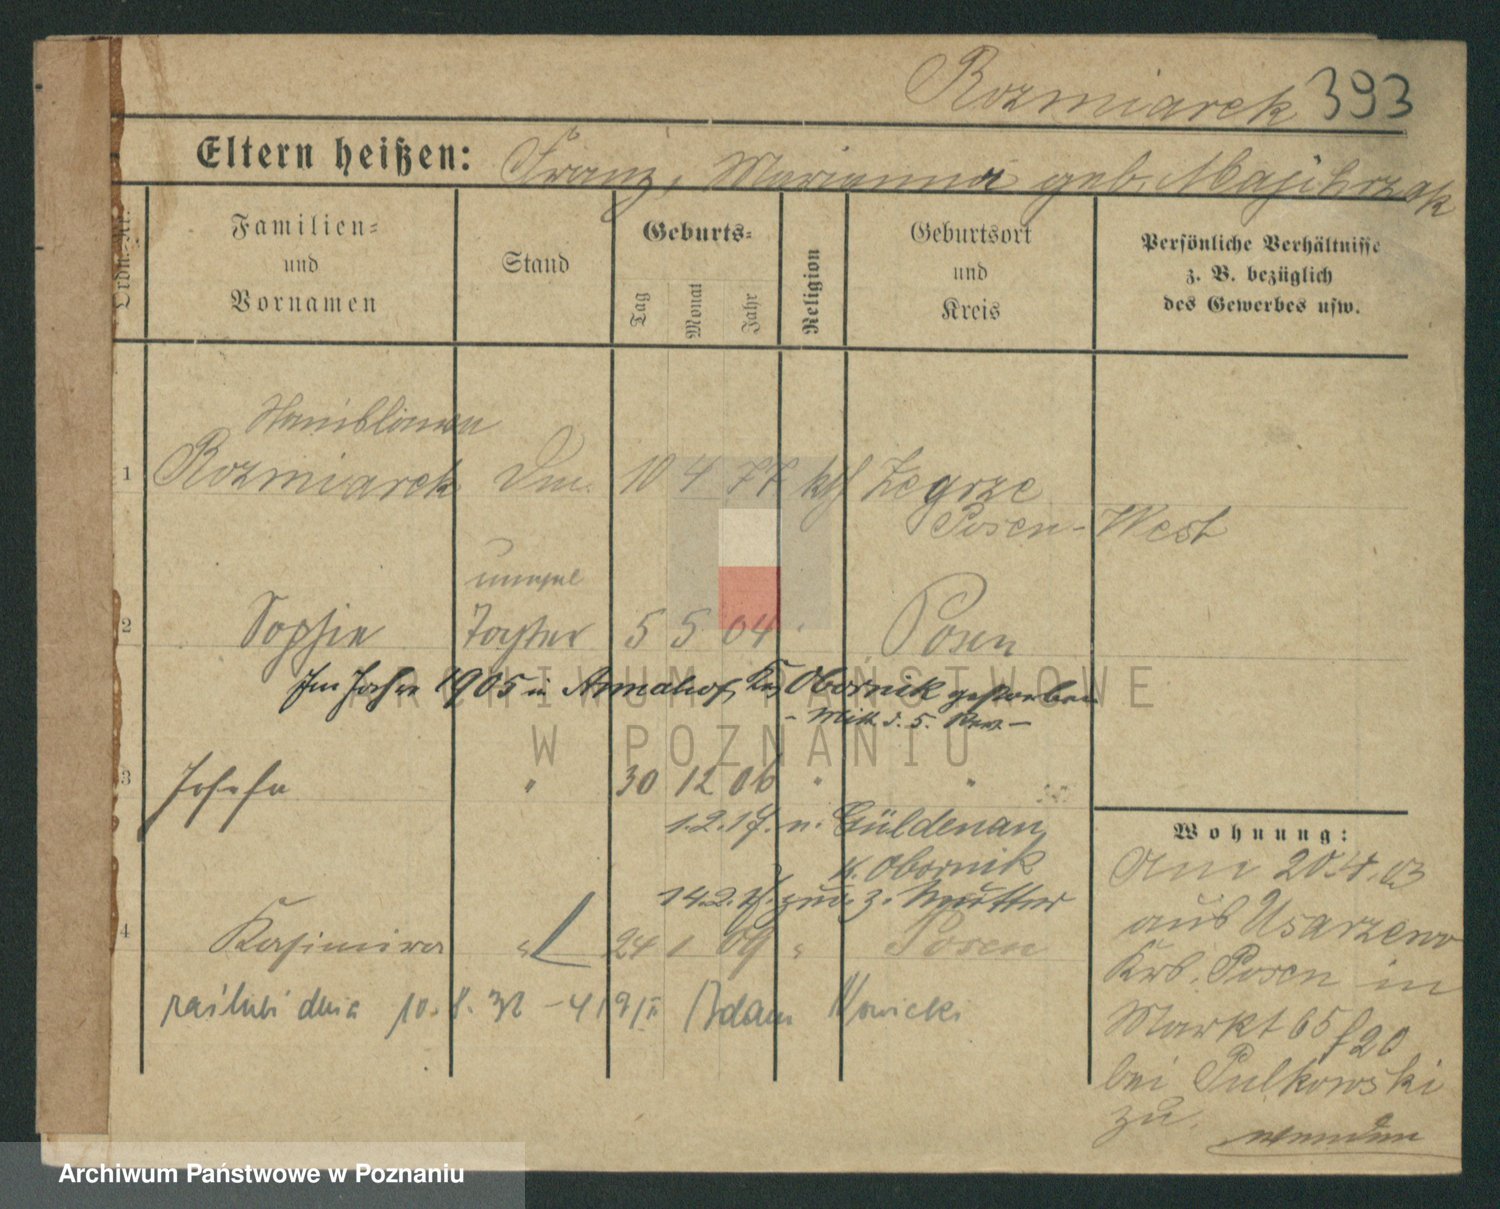 Rozmiarek 393
Eltern heißen: Franz, Marianna geb. Majchrzak
Ordn.-Nr.
Familien-
und
Vornamen
Stand
Geburts-
Tag
Monat
Jahr
Religion
Geburtsort
und
Kreis
Persönliche Verhältnisse
z. B. bezüglich
des Gewerbes usw.
Stanislawa
1 Rozmiarek 10 4 77 kth Zegrze
Posen-West
unehel
2 Sophie Tochter 5 5 04 " Posen
Im Jahre 1905 in Annahof, Krs. Obornik gestorben
- Mitt. d. 5. Rev. -
3 Josefa " 30 12 06 " "
1.2.17. n. Güldenau
K. Obornik
14.2.17. zur. z. Mutter
4 Kasimira " 24 1 09 " Posen
zaślubi dnia 10.8.32 - 419/II Adam Nowicki
Wohnung:
Am 20.4.03
aus Usarzewo
Krs. Posen in
Markt 65 f 20
bei Pulkowski
zu.
wenden
ARCHIWUM PAŃSTWOWE
W POZNANIU
Archiwum Państwowe w Poznaniu